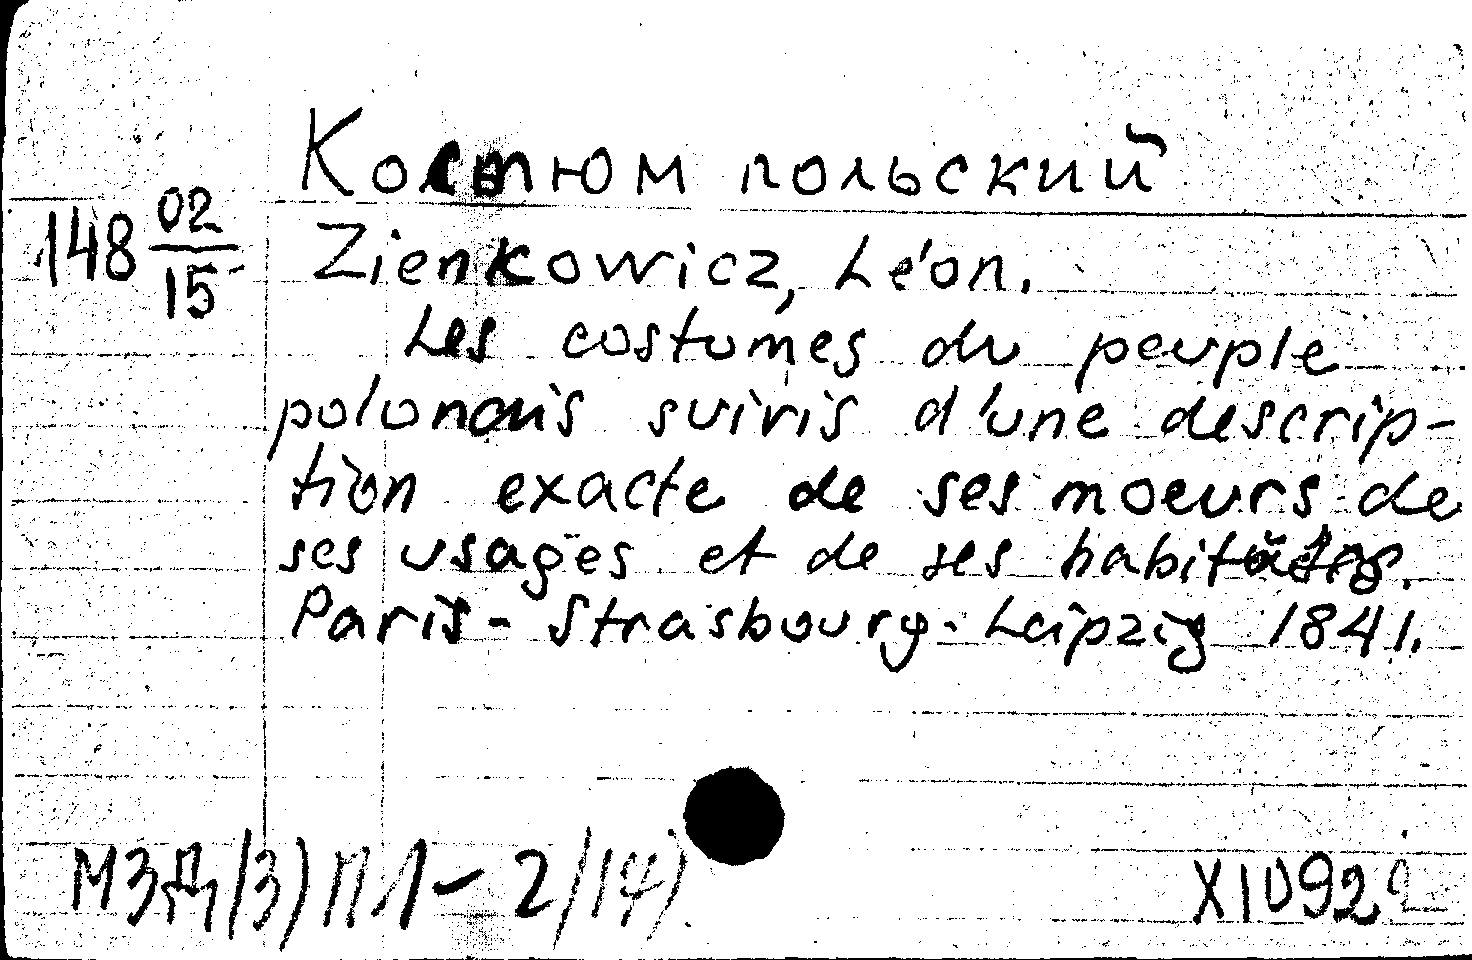 Костюм польский
148 02/15
Zienkowicz, Léon.
Les costumes du peuple
polonais suivis d'une descrip-
tion exacte de ses moeurs de
ses usages et de ses
Paris - Strasbourg - Leipzig 1841.
2/14)
X1092